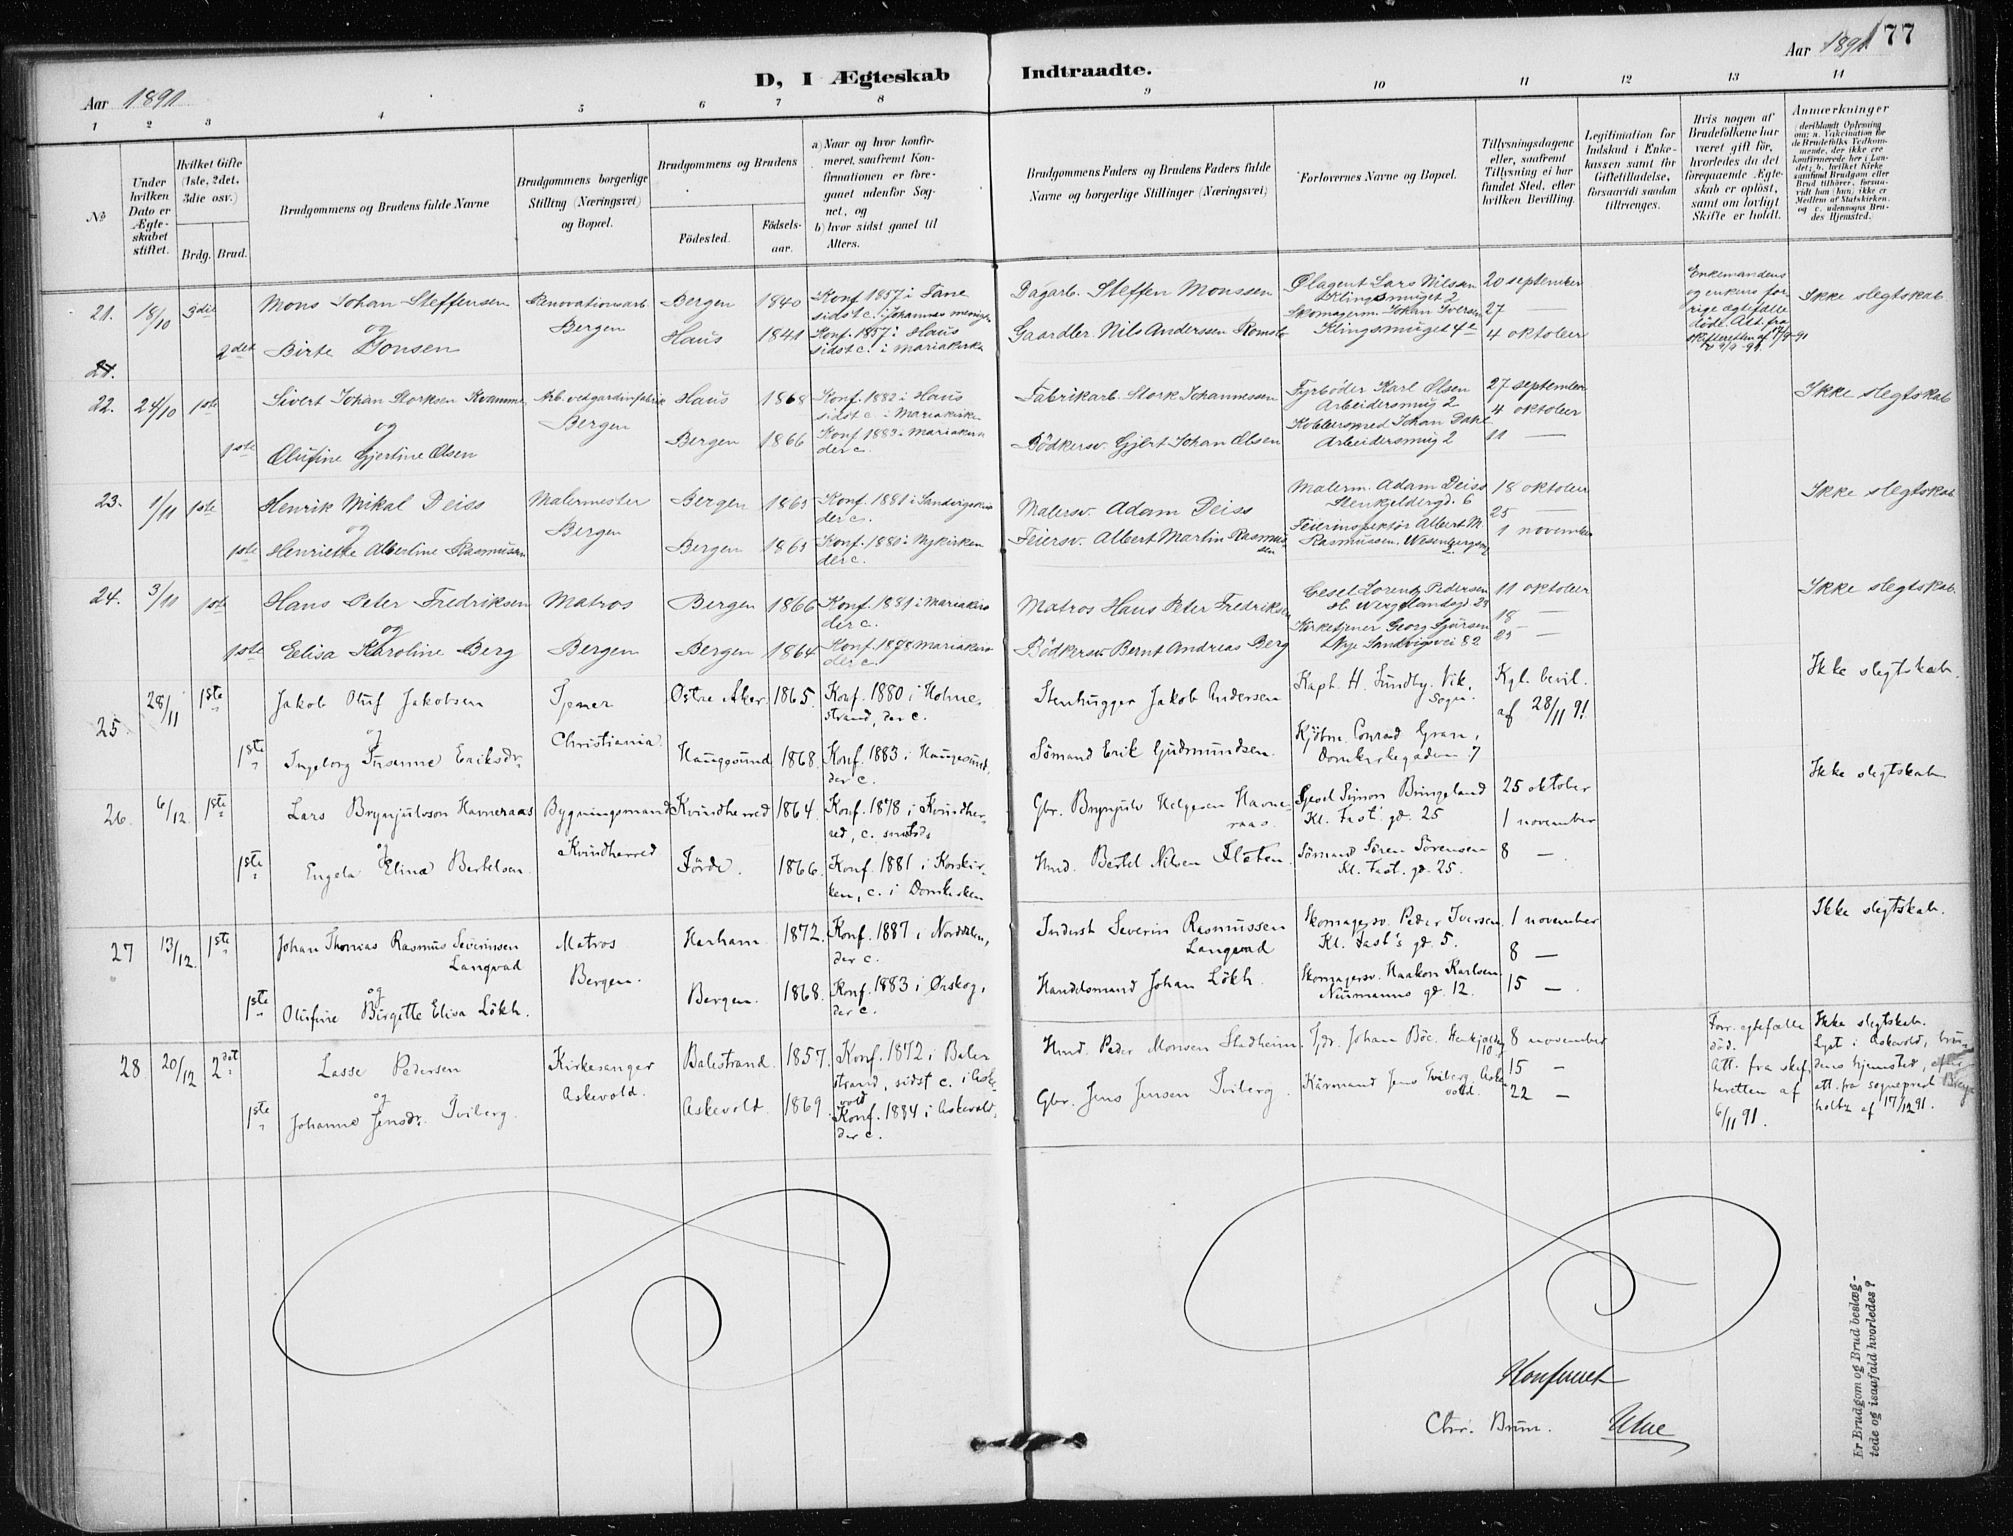 Aar 1891
D, I Ægteskab Indtraadte.
Aar 1891 177
1 2 3 4 5 6 7 8 9 10 11 12 13 14
№
Under hvilken Dato er Ægteskabet stiftet.
Hvilket Gifte (1ste, 2det, 3die osv.)
Brdg. Brud.
Brudgommens og Brudens fulde Navne
Brudgommens borgerlige Stilling (Næringsvei) og Bopæl.
Brudgommens og Brudens
Fødested. Fødselsaar.
a) Naar og hvor konfirmeret, saafremt Konfirmationen er foregaaet udenfor Sognet, og
b) hvor sidst gaaet til Alters.
Brudgommens Faders og Brudens Faders fulde Navne og borgerlige Stillinger (Næringsvei)
Forlovernes Navne og Bopæl.
Tillysningsdagene eller, saafremt Tillysning ei har fundet Sted, efter hvilken Bevilling.
Legitimation for Indskud i Enkekassen samt for Giftetilladelse, forsaavidt saadan tiltrænges.
Hvis nogen af Brudefolkene har været gift før, hvorledes da det foregaaende Ægteskab er opløst, samt om lovligt Skifte er holdt.
Anmærkninger
21. 18/10 3die Mons Johan Steffensen Renovationsarb. Bergen 1840 Konf 1857 i Fane
sidst c. i Johannes menigh. Dagarb. Steffen Monssen Ølagent Lars Nilsen
Klingsmuget 2 20 september
og
2det Birte Jonsen Bergen Haus 1841 Konf. 1857 i Haus
sidst c. i Mariakirke Gaardbr. Nils Anderssen Romslo Skomagerm. Johan Iversen
Klingsmuget 4e 27 —
4 oktober
Enkemandens
og enkens for-
rige egtefælle
døde. Att. fra
skifteretten af 17/9-91
Ikke slegtskab.
21.
22. 24/10 1ste Sivert Johan Storksen Kvamme Arb. ved gardinfabrik Haus 1868 Konf. 1882 i Haus
sidst c. i Mariakirken Fabrikarb. Stork Johannessen Fyrbøder Karl Olsen
Arbeidersmug 2 27 september
4 oktober Ikke slegtskab
og
1ste Olufine Gjertine Olsen Bergen Bergen 1866 Konf 1883 i Mariakirken
der c. Bödkersv. Gjert Johan Olsen Kobbersmed Johan Dahl
Arbeidersmug 2 11 —
23. 1/11 1ste Henrik Mikal Deiss Malermester Bergen 1865 Konf. 1881 i Sandvigskir
der c. Malersv. Adam Deiss Malerm. Adam Deiss
Stenkjeldergd. 6 18 oktober
25 — Ikke slegtskab
og
1ste Henriette Albertine Rasmussen Bergen Bergen 1865 Konf. 1880 i Nykirken
der c. Feiersv. Albert Martin Rasmus-
sen Feierinspektør Albert M.
Rasmussen. 1 november
24. 3/11 1ste Hans Peter Fredriksen Matros Bergen 1866 Konf. 1881 i Mariakirk
der c. Matros Hans Peter Fredriksen Gesel Lorentz Pedersen 11 oktober
18 — Ikke slegtskab.
og
1ste Elisa Karoline Berg Bergen Bergen 1864 Konf. 1878 Mariakirk
der c. Bödkersv. Bernt Andreas Berg Kirketjener Georg Sjursen
Nye Sandvigsvei 82 25 —
25 28/11 1ste Jakob Oluf Jakobsen Tjener Østre Aker 1865. Konf. 1880 i Holme-
strand, der c. Stenhugger Jakob Andersen Kapt. H. Sundby. Vik.
Sogn. Kgl. bevil.
af 28/11 91. Ikke slegtskab
og
1ste Ingeborg Susanne Eriksdr. Christiania. Haugesund 1868. Konf. 1883 i Haugesund,
der c. Sömand Erik Gudmundsen. Kjöbm. Conrad Gran,
Domkirkegaden 7
26. 6/12 1ste Lars Brynjulvson Havneraas Bygningsmand Kvindherred 1864. Konf. 1878 i Kvindher-
red, c. smstds Gbr. Brynjulv Helgesen Havne-
raas. Gjesel Simon Bringeland
Kl. Fast. gd. 25 25 oktober
1 november Ikke slegtskab
og
1ste Engela Elina Bertelsen Kvindherred Förde. 1866. Konf. 1881 i Korskir-
ken, c. i Domkirken Hmd. Bertel Nilsen Floten. Sömand Sören Sörensen
Kl. Fast. gd. 25. 8 —.
27 13/12. 1ste Johan Thomas Rasmus Severinsen
Langvad Matros Harham. 1872. Konf. 1887 i Norddalen,
der c. Inderst Severin Rasmussen
Langvad Skomagersv. Peder Iversen
Kl. Fast's gd. 5. 1 november
8 — Ikke slegtskab.
og
1ste Olufine Birgitte Elisa Lökh. Bergen. Bergen. 1868. Konf. 1883 i Ørskog,
der c. Handelsmand Johan Lökh. Skomagersv. Haakon Karlsen
Neumanns gd. 12. 15 —.
28 20/12 2det Lasse Pedersen Kirkesanger Balestrand. 1857. Konf. 1872 i Bale-
strand, sidst c. i Aske-
vold Hmd. Peder Monsen Stadheim Tjdr. Johan Böe. 8 november
15 —
og
1ste Johanne Jensdr. Tviberg. Askevold. Askevold. 1869. Konf. 1884 i Askevold,
der c. Gbr. Jens Jensen Tviberg. Kårmand Jens Tviberg Aske-
vold. 22 —
Forr. egtefælle
död.
Att. fra skif-
teretten af
6/11 91.
Ikke slegtskab.
Lyst i Askevold, bru-
dens hjemsted, efter
att. fra sogneprest
holtz af 17/12 91.
Konfereret
Chr. Brun.
Er Brudgom og Brud beslæg-
tede og isaafald hvorledes?